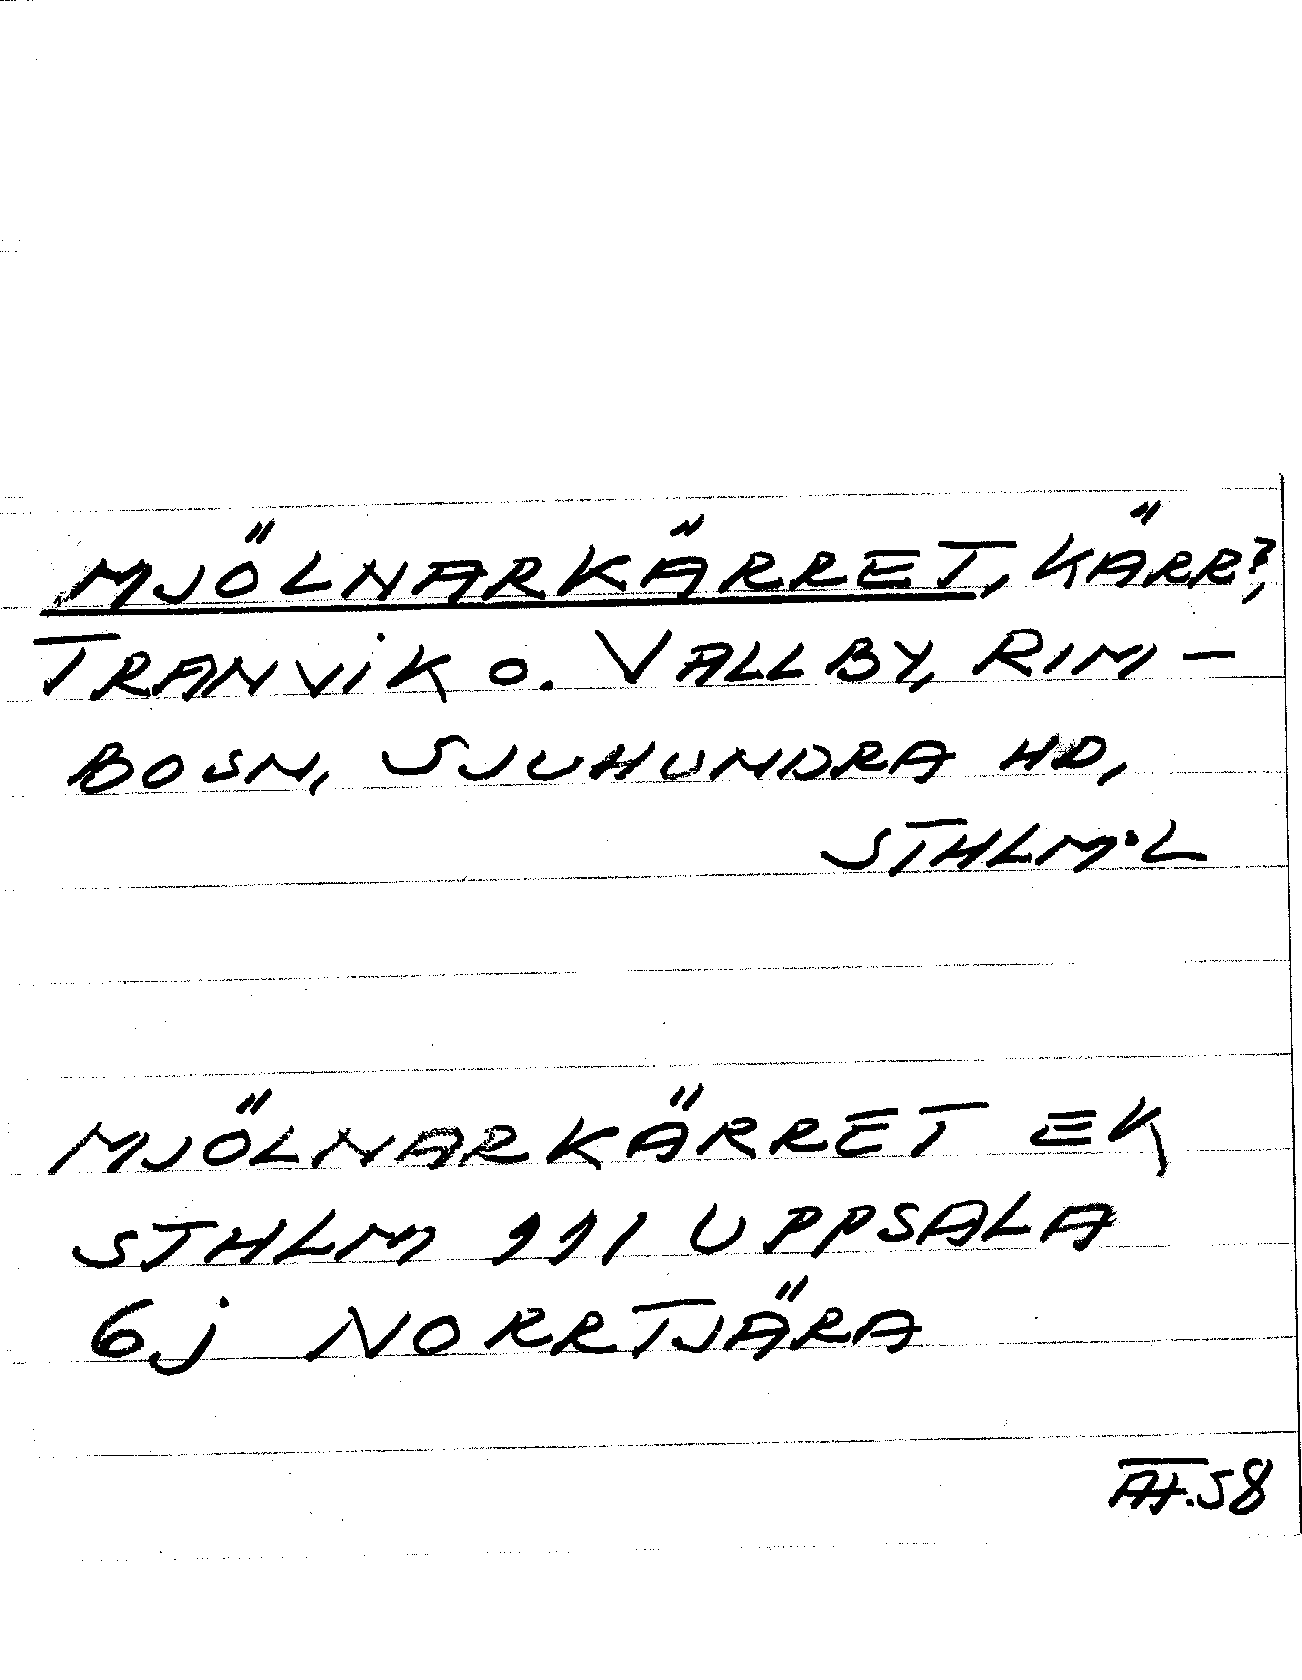 MJÖLNARKÄRRET, KÄRR?,
TRANVIK O. VALLBY, RIM-
BOSN, SJUHUNDRA HD,
STHLM·L
MJÖLNARKÄRRET EK
STHLM 111 UPPSALA
6j NORRTJÄRA